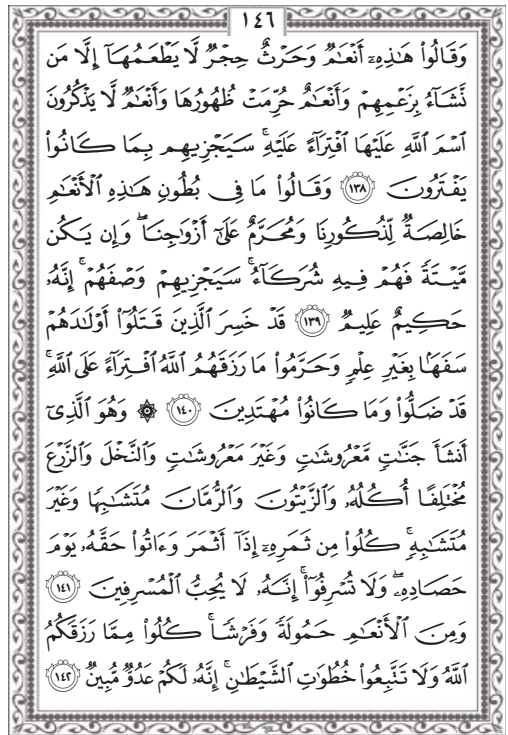 ١٤٦
وَقَالُوا۟ هَـٰذِهِۦٓ أَنْعَـٰمٌ وَحَرْثٌ حِجْرٌ لَّا يَطْعَمُهَآ إِلَّا مَن
نَّشَآءُ بِزَعْمِهِمْ وَأَنْعَـٰمٌ حُرِّمَتْ ظُهُورُهَا وَأَنْعَـٰمٌ لَّا يَذْكُرُونَ
ٱسْمَ ٱللَّهِ عَلَيْهَا ٱفْتِرَآءً عَلَيْهِ ۚ سَيَجْزِيهِم بِمَا كَانُوا۟
يَفْتَرُونَ ١٣٨ وَقَالُوا۟ مَا فِى بُطُونِ هَـٰذِهِ ٱلْأَنْعَـٰمِ
خَالِصَةٌ لِّذُكُورِنَا وَمُحَرَّمٌ عَلَىٰٓ أَزْوَٰجِنَا ۖ وَإِن يَكُن
مَّيْتَةً فَهُمْ فِيهِ شُرَكَآءُ ۚ سَيَجْزِيهِمْ وَصْفَهُمْ ۚ إِنَّهُۥ
حَكِيمٌ عَلِيمٌ ١٣٩ قَدْ خَسِرَ ٱلَّذِينَ قَتَلُوٓا۟ أَوْلَـٰدَهُمْ
سَفَهًۢا بِغَيْرِ عِلْمٍ وَحَرَّمُوا۟ مَا رَزَقَهُمُ ٱللَّهُ ٱفْتِرَآءً عَلَى ٱللَّهِ ۚ
قَدْ ضَلُّوا۟ وَمَا كَانُوا۟ مُهْتَدِينَ ١٤٠ ۞ وَهُوَ ٱلَّذِىٓ
أَنشَأَ جَنَّـٰتٍ مَّعْرُوشَـٰتٍ وَغَيْرَ مَعْرُوشَـٰتٍ وَٱلنَّخْلَ وَٱلزَّرْعَ
مُخْتَلِفًا أُكُلُهُۥ وَٱلزَّيْتُونَ وَٱلرُّمَّانَ مُتَشَـٰبِهًا وَغَيْرَ
مُتَشَـٰبِهٍ ۚ كُلُوا۟ مِن ثَمَرِهِۦٓ إِذَآ أَثْمَرَ وَءَاتُوا۟ حَقَّهُۥ يَوْمَ
حَصَادِهِۦ ۖ وَلَا تُسْرِفُوٓا۟ ۚ إِنَّهُۥ لَا يُحِبُّ ٱلْمُسْرِفِينَ ١٤١
وَمِنَ ٱلْأَنْعَـٰمِ حَمُولَةً وَفَرْشًا ۚ كُلُوا۟ مِمَّا رَزَقَكُمُ
ٱللَّهُ وَلَا تَتَّبِعُوا۟ خُطُوَٰتِ ٱلشَّيْطَـٰنِ ۚ إِنَّهُۥ لَكُمْ عَدُوٌّ مُّبِينٌ ١٤٢